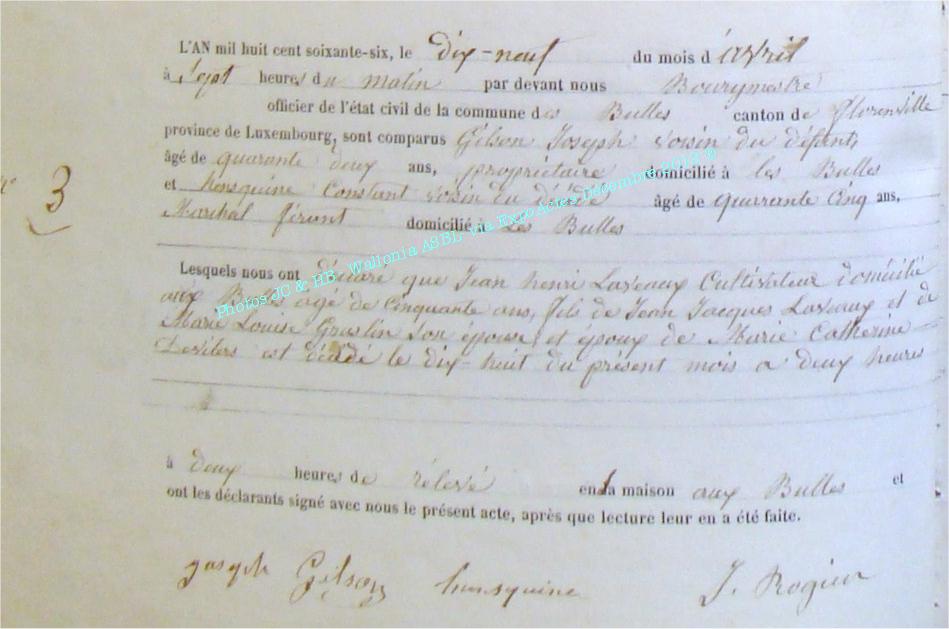 L'AN mil huit cent soixante-six, le dix-neuf du mois d'avril
à sept heures du matin par devant nous Bourgmestre
officier de l'état civil de la commune des Bulles canton de florenville
province de Luxembourg, sont comparus Gilson Joseph voisin du défunt,
âgé de quarante deux ans, propriétaire domicilié à les Bulles
N° 3
et hensquine Constant voisin du décédé âgé de quarante Cinq ans,
Maréchal férant domicilié à Les Bulles
Lesquels nous ont déclaré que Jean henri Laveaux Cultivateur domicilié
aux Bulles agé de Cinquante ans, fils de Jean Jacques Laveaux et de
Marie Louise Graslin son épouse, et époux de Marie Catherine
est décédé le dix-huit du présent mois a deux heures
à deux heures de rélevé en la maison aux Bulles et
ont les déclarants signé avec nous le présent acte, après que lecture leur en a été faite.
joseph Gilson hensquine J. Rogier
Photos JC & HB, Wallonia ASBL, via ExpoActes Décembre 2018 ®